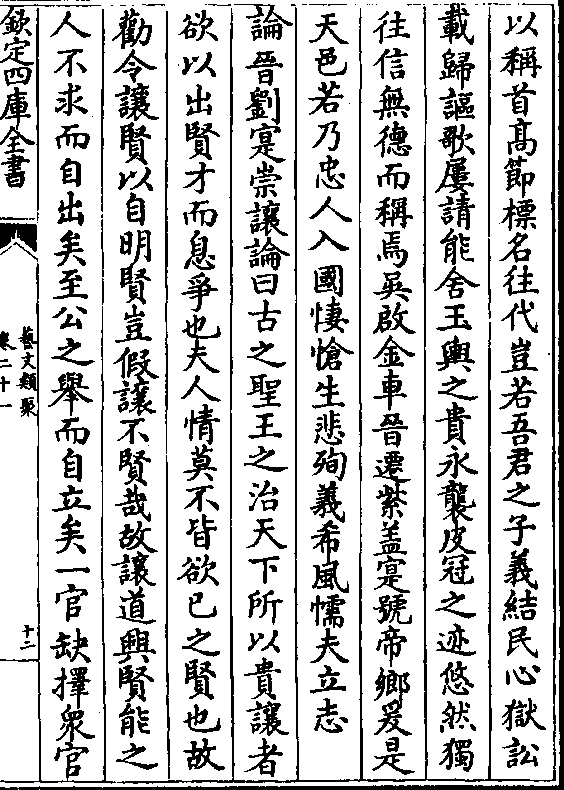 以稱首髙節標名往代豈若吾君之子義結民心獄訟
載歸謳歌屢請能舍玉輿之貴永襲皮冠之迹悠然獨
往信無德而稱焉吳啟金車晉遷紫盖寔號帝鄉爰是
天邑若乃忠人入國悽愴生悲殉義希風懦夫立志
論晉劉寔崇讓論曰古之聖王之治天下所以貴讓者
欲以出賢才而息爭也夫人情莫不皆欲已之賢也故
勸令讓賢以自明賢豈假讓不賢哉故讓道興賢能之
人不求而自出矣至公之舉而自立矣一官缺擇衆官
欽定四庫全書
藝文類聚
卷二十一
十二